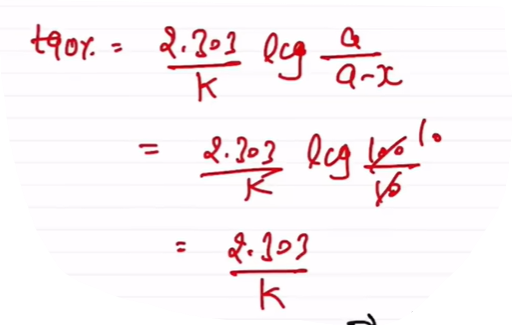 t90% = 2.303/K log a/a-x
= 2.303/K log 100/10 10
= 2.303/K